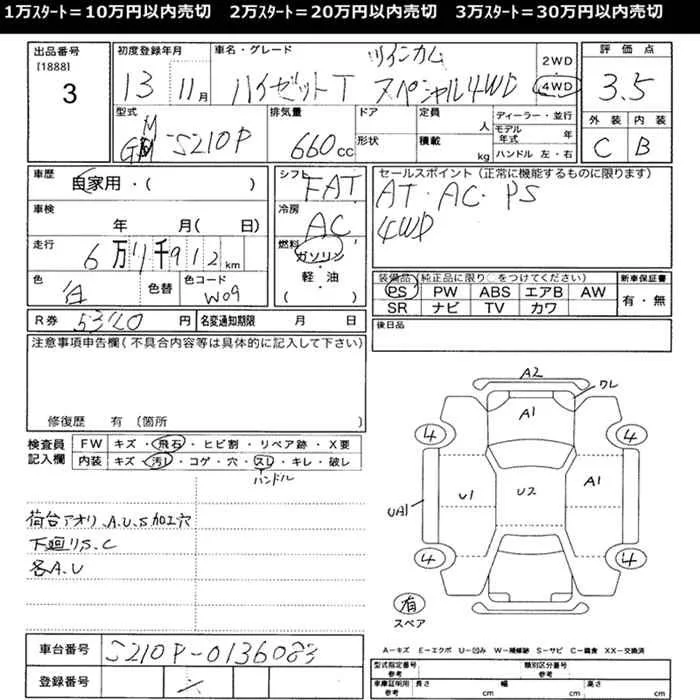 1万ｽﾀｰﾄ＝10万円以内売切　2万ｽﾀｰﾄ＝20万円以内売切　3万ｽﾀｰﾄ＝30万円以内売切
出品番号
[1888]
3
初度登録年月
13 11月
車名・グレード
ツインカム
ハイゼットT スペシャル4WD
2WD
4WD
評価点
3.5
外装 内装
C B
型式
S210P
排気量
660cc
ドア
形状
定員
人
積載
kg
ディーラー・並行
モデル年式 年
ハンドル 左・右
車歴
自家用・( )
車検
年 月( 日)
走行
6万 千912km
色
白
色替
色コード
W09
R券 円
名変通知期限 月 日
シフト
FAT
冷房
AC
燃料
ガソリン
・
軽・油
( )
セールスポイント(正常に機能するものに限ります)
AT・AC・PS
4WD
装備品(純正品に限り○をつけてください)
PS PW ABS エアB AW
SR ナビ TV カワ
新車保証書
有・無
後日品
注意事項申告欄(不具合内容等は具体的に記入して下さい)
修復歴 有〔箇所 〕
検査員記入欄
FW キズ・飛石・ヒビ割・リペア跡・X要
内装 キズ・汚レ・コゲ・穴・スレ・キレ・破レ
ハンドル
荷台アオリ、A.U.S加工穴
下廻りS.C
各A.U
A2
ワレ
A1
4
4
UA1
U1
U2
A1
4
4
有
スペア
A－キズ E－エクボ U－凹み W－補修跡 S－サビ C－腐食 XX－交換済
車台番号
S210P-0136083
登録番号
型式指定番号
参考
類別区分番号
参考
車庫証明用
参考
長さ cm
幅 cm
高さ cm